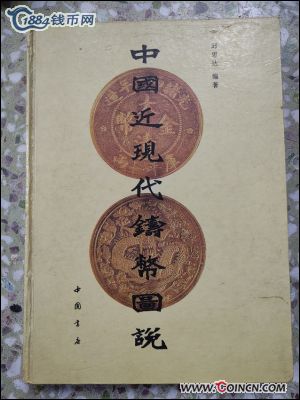 984钱币网
中國近現代鑄幣圖說
编著
中国书店
WWW.COINCN.COM